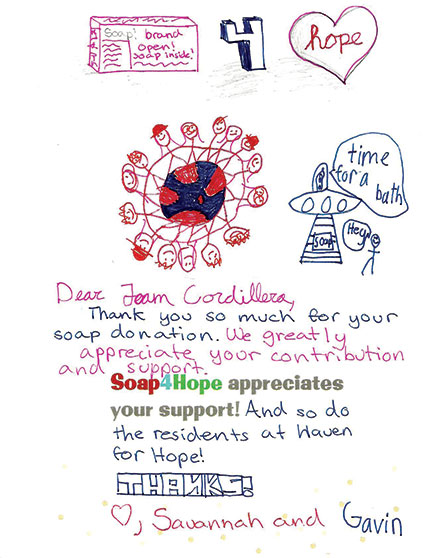 Soap! brand
open!
soap inside!
4
hope
time
for a
bath
Hey
SOAP
Dear Team Cordillera,
Thank you so much for your
soap donation. We greatly
appreciate your contribution
and support.
Soap4Hope appreciates
your support! And so do
the residents at Haven
for Hope!
THANKS!
♡, Savannah and Gavin